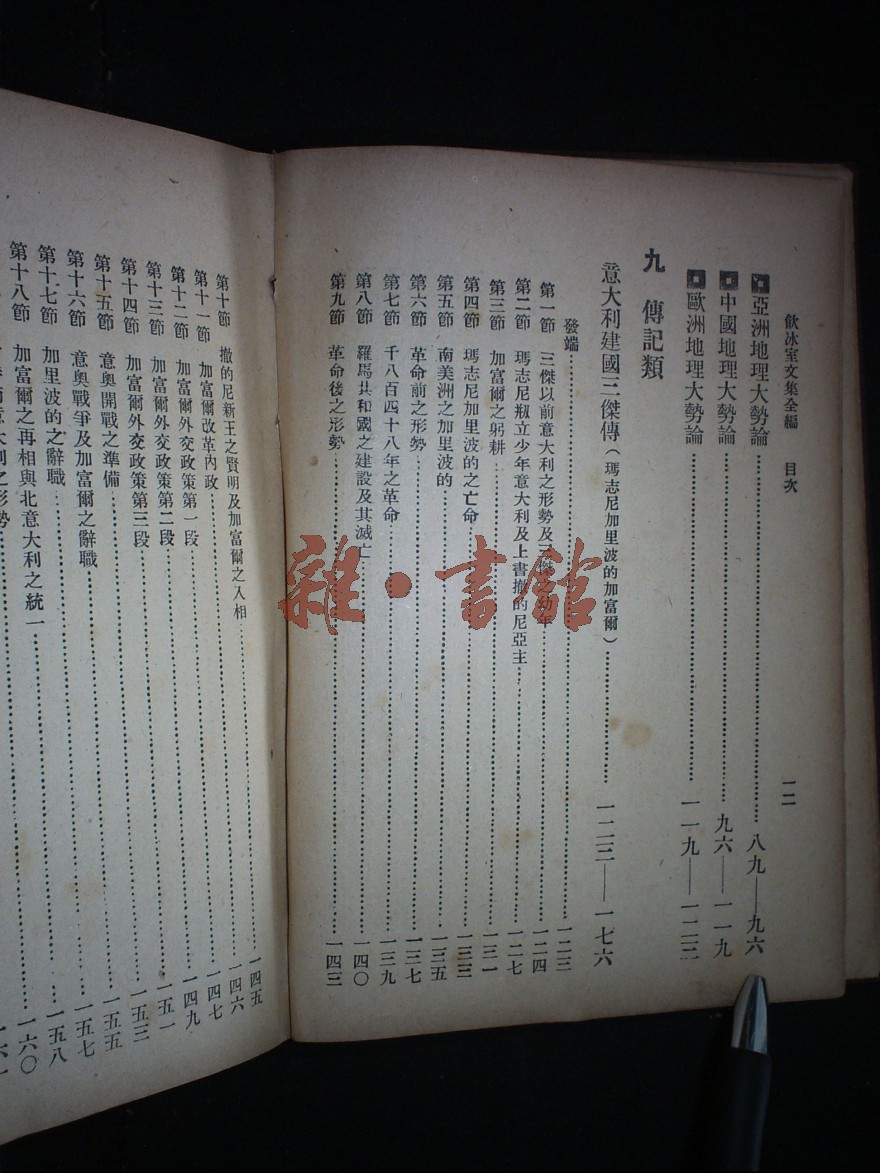 飲冰室文集全編 目次 一二
亞洲地理大勢論 八九—九六
中國地理大勢論 九六—一一九
歐洲地理大勢論 一一九—一二三
九 傳記類
意大利建國三傑傳（瑪志尼加里波的加富爾） 一二三—一七六
發端 一二三
第一節 三傑以前意大利之形勢及三傑之幼年 一二四
第二節 瑪志尼瓶立少年意大利及上書撒的尼亞主 一二七
第三節 加富爾之躬耕 一三一
第四節 瑪志尼加里波的之亡命 一三三
第五節 南美洲之加里波的 一三五
第六節 革命前之形勢 一三七
第七節 千八百四十八年之革命 一三九
第八節 羅馬共和國之建設及其滅亡 一四〇
第九節 革命後之形勢 一四三
第十節 撒的尼新王之賢明及加富爾之入相 一四五
第十一節 加富爾改革內政 一四六
第十二節 加富爾外交政策第一段 一四七
第十三節 加富爾外交政策第二段 一四九
第十四節 加富爾外交政策第三段 一五一
第十五節 意奧開戰之準備 一五三
第十六節 意奧戰爭及加富爾之辭職 一五五
第十七節 加里波的之辭職 一五七
第十八節 加富爾之再相與北意大利之統一 一五八
意大利之形勢 一六〇
雜·書館